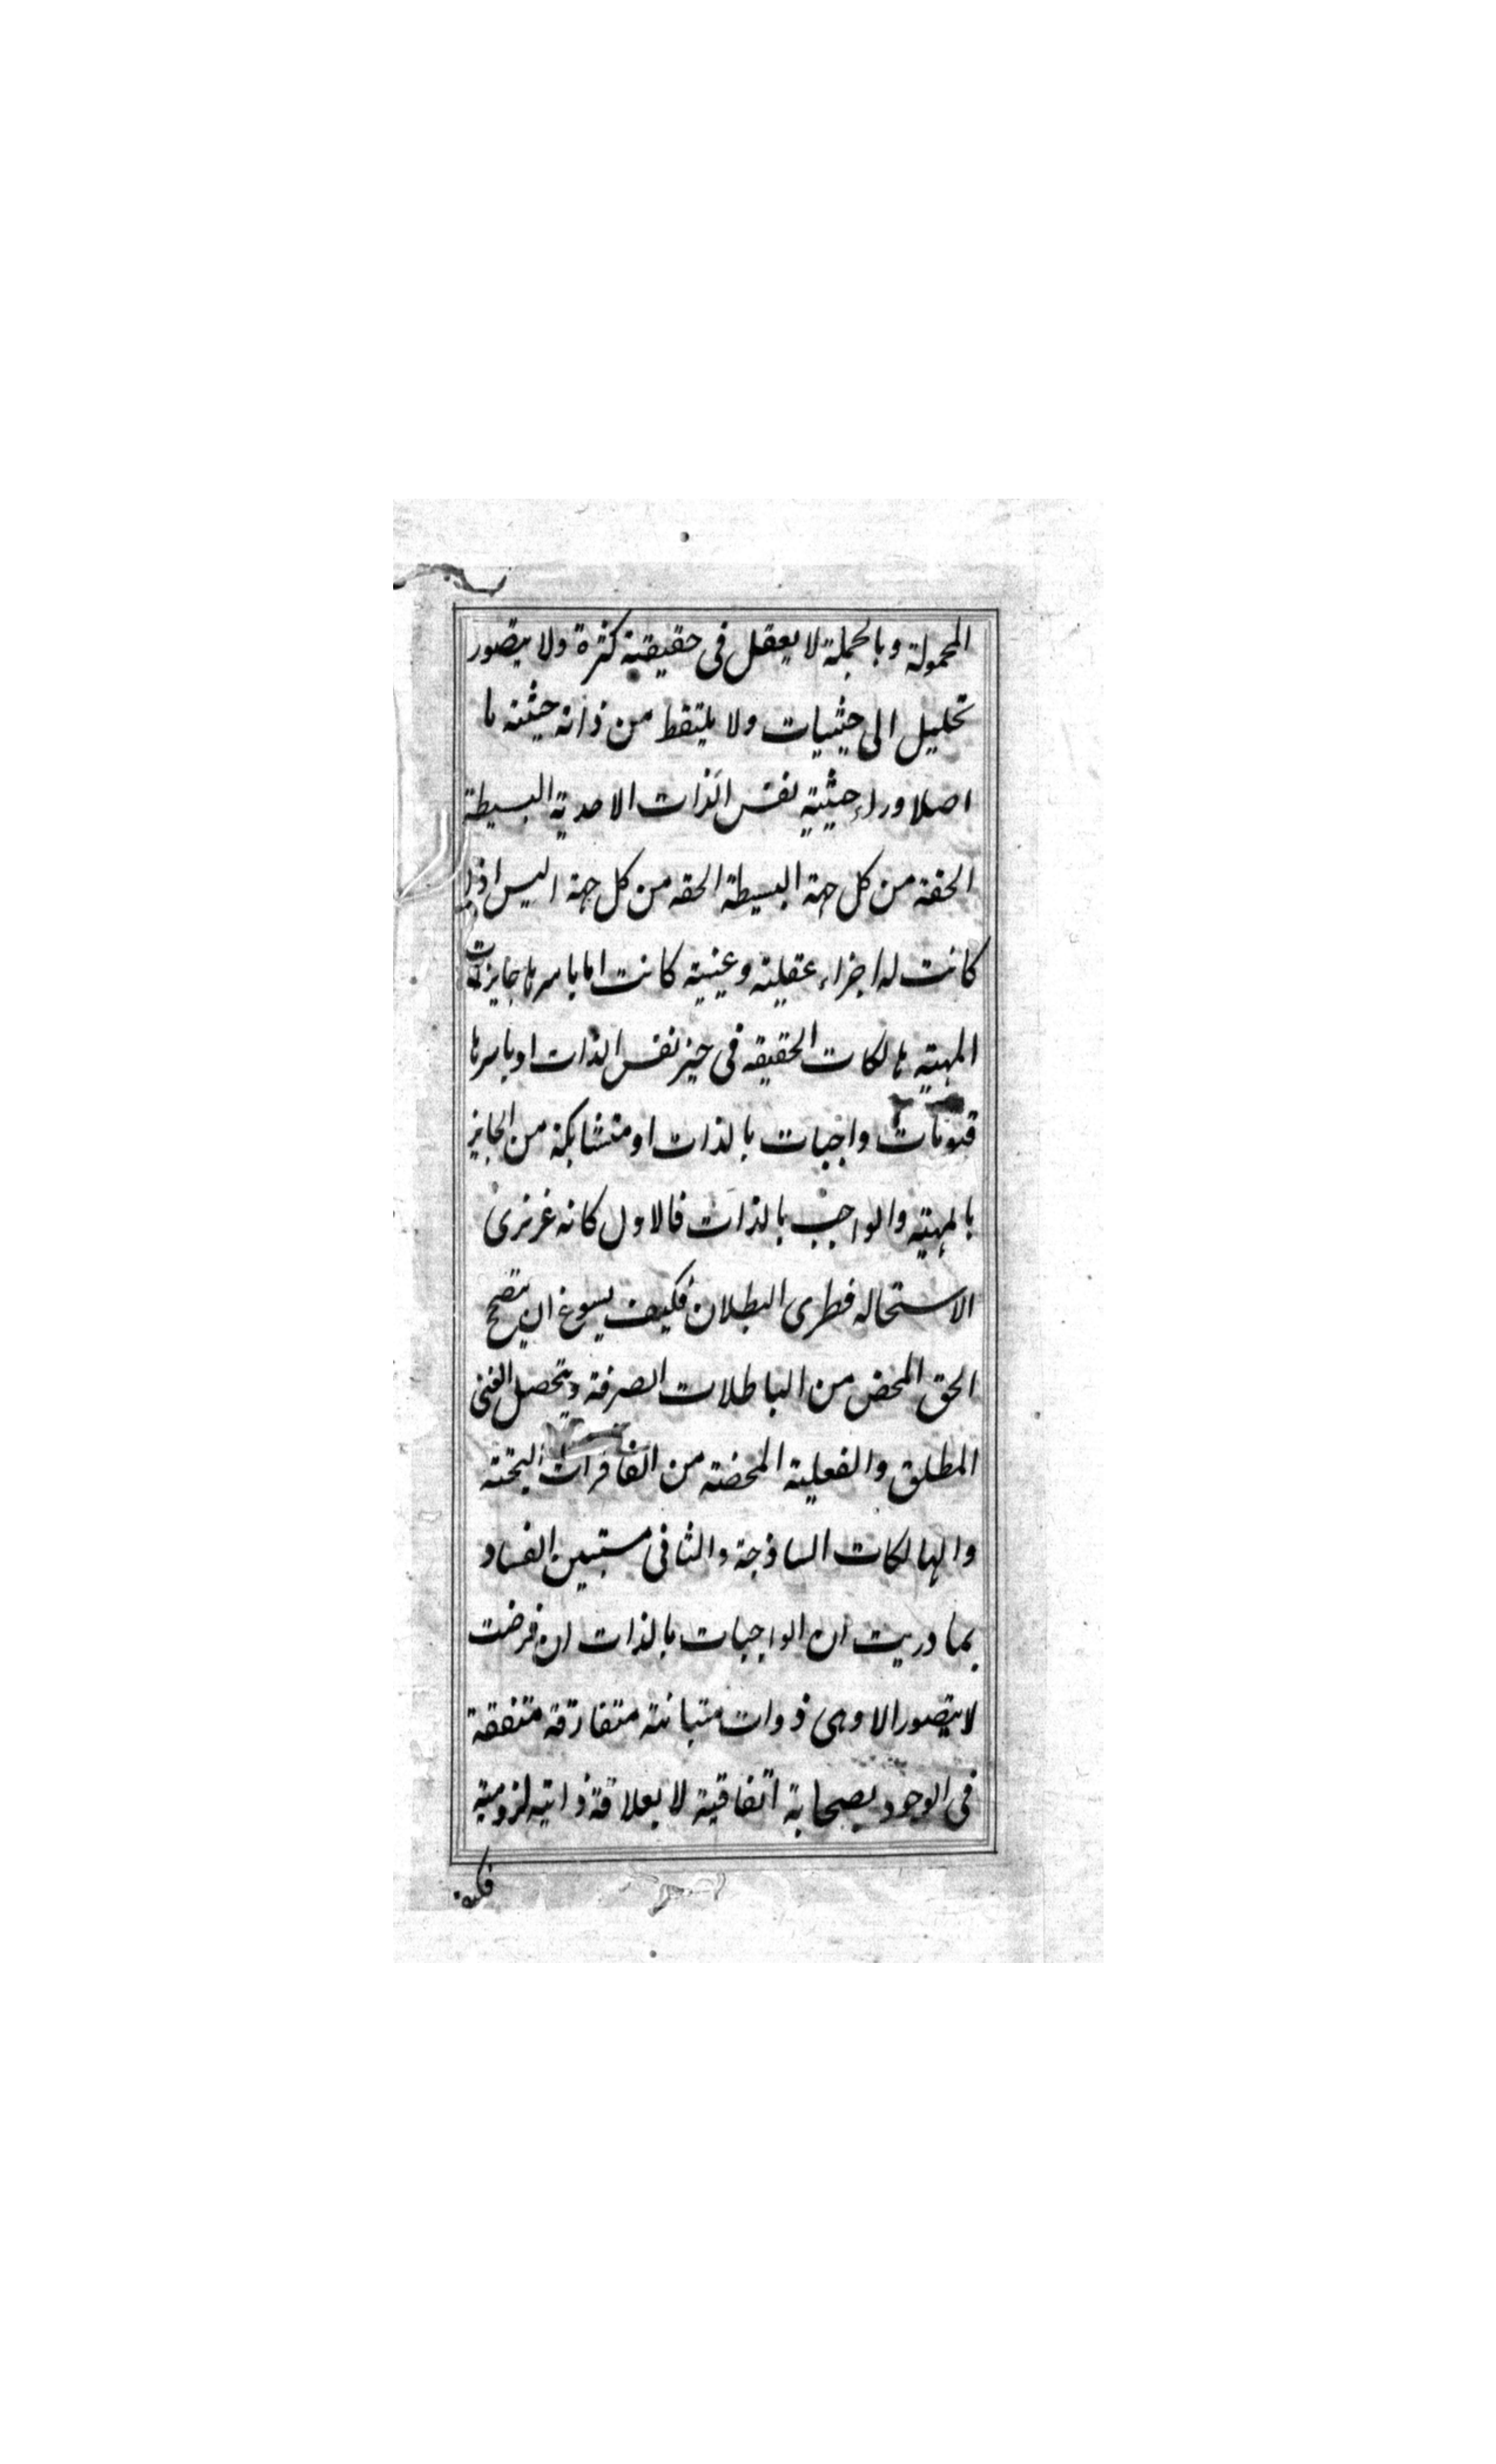 المحمولة وبالجملة لا يعقل فى حقيقية كثرة ولا يتصور
تحليل الى حيثيات ولا يلتقط من ذاته حيثية ما
اصلا وراء حيثية نفس الذات الاحدية البسيطة
الحقة من كل جهة البسيطة الحقه من كل جهة اليس اذا
كانت له اجزاء عقلية وعينية كانت اما باسرها جايزات
المهية هالكات الحقيقه فى حيز نفس الذات او باسرها
قيومات واجبات بالذات او متشابكة من الجايز
بالمهية والواجب بالذات فالاول كانه غريزى
الاستحاله فطرى البطلان فكيف يسوغ ان يتصحح
الحق المحض من الباطلات الصرفة ويتحصل الغنى
المطلق والفعلية المحضة من الفاقرات البحتة
والهالكات الساذجة والثانى مستبين الفساد
بما دريت ان الواجبات بالذات ان فرضت
لا يتصور الا وهى ذوات متباينة متفارقة متفقة
فى الوجود بصحابة اتفاقية لا بعلاقة ذاتيه لزومية
فكيف